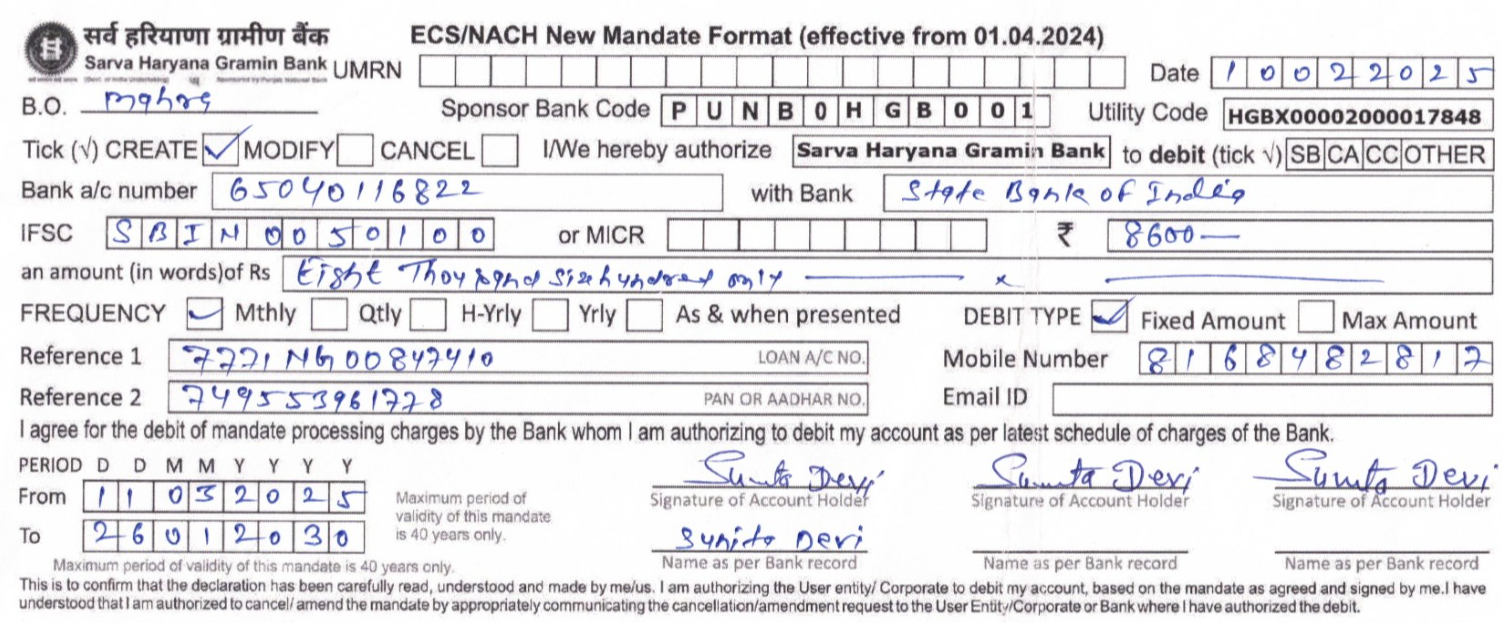 सर्व हरियाणा ग्रामीण बैंक
ECS/NACH New Mandate Format (effective from 01.04.2024)
Sarva Haryana Gramin Bank UMRN Date 10022025
B.O. Sponsor Bank Code PUNB0HGB001 Utility Code HGBX00002000017848
Tick (√) CREATE ✓ MODIFY CANCEL I/We hereby authorize Sarva Haryana Gramin Bank to debit (tick √) SB CA CC OTHER
Bank a/c number 65040116822 with Bank State Bank of India
IFSC SBIN0050100 or MICR ₹ 8600—
an amount (in words)of Rs Eight Thousand Six hundred only — x —
FREQUENCY ✓ Mthly Qtly H-Yrly Yrly As & when presented DEBIT TYPE ✓ Fixed Amount Max Amount
Reference 1 7771NG00847410 LOAN A/C NO. Mobile Number 8168482817
Reference 2 749553961778 PAN OR AADHAR NO. Email ID
I agree for the debit of mandate processing charges by the Bank whom I am authorizing to debit my account as per latest schedule of charges of the Bank.
PERIOD D D M M Y Y Y Y
From 11032025
To 26012030
Maximum period of
validity of this mandate
is 40 years only.
Maximum period of validity of this mandate is 40 years only.
Sunita Devi Sunita Devi Sunita Devi
Signature of Account Holder Signature of Account Holder Signature of Account Holder
Sunita Devi
Name as per Bank record Name as per Bank record Name as per Bank record
This is to confirm that the declaration has been carefully read, understood and made by me/us. I am authorizing the User entity/ Corporate to debit my account, based on the mandate as agreed and signed by me.I have
understood that I am authorized to cancel/ amend the mandate by appropriately communicating the cancellation/amendment request to the User Entity/Corporate or Bank where I have authorized the debit.